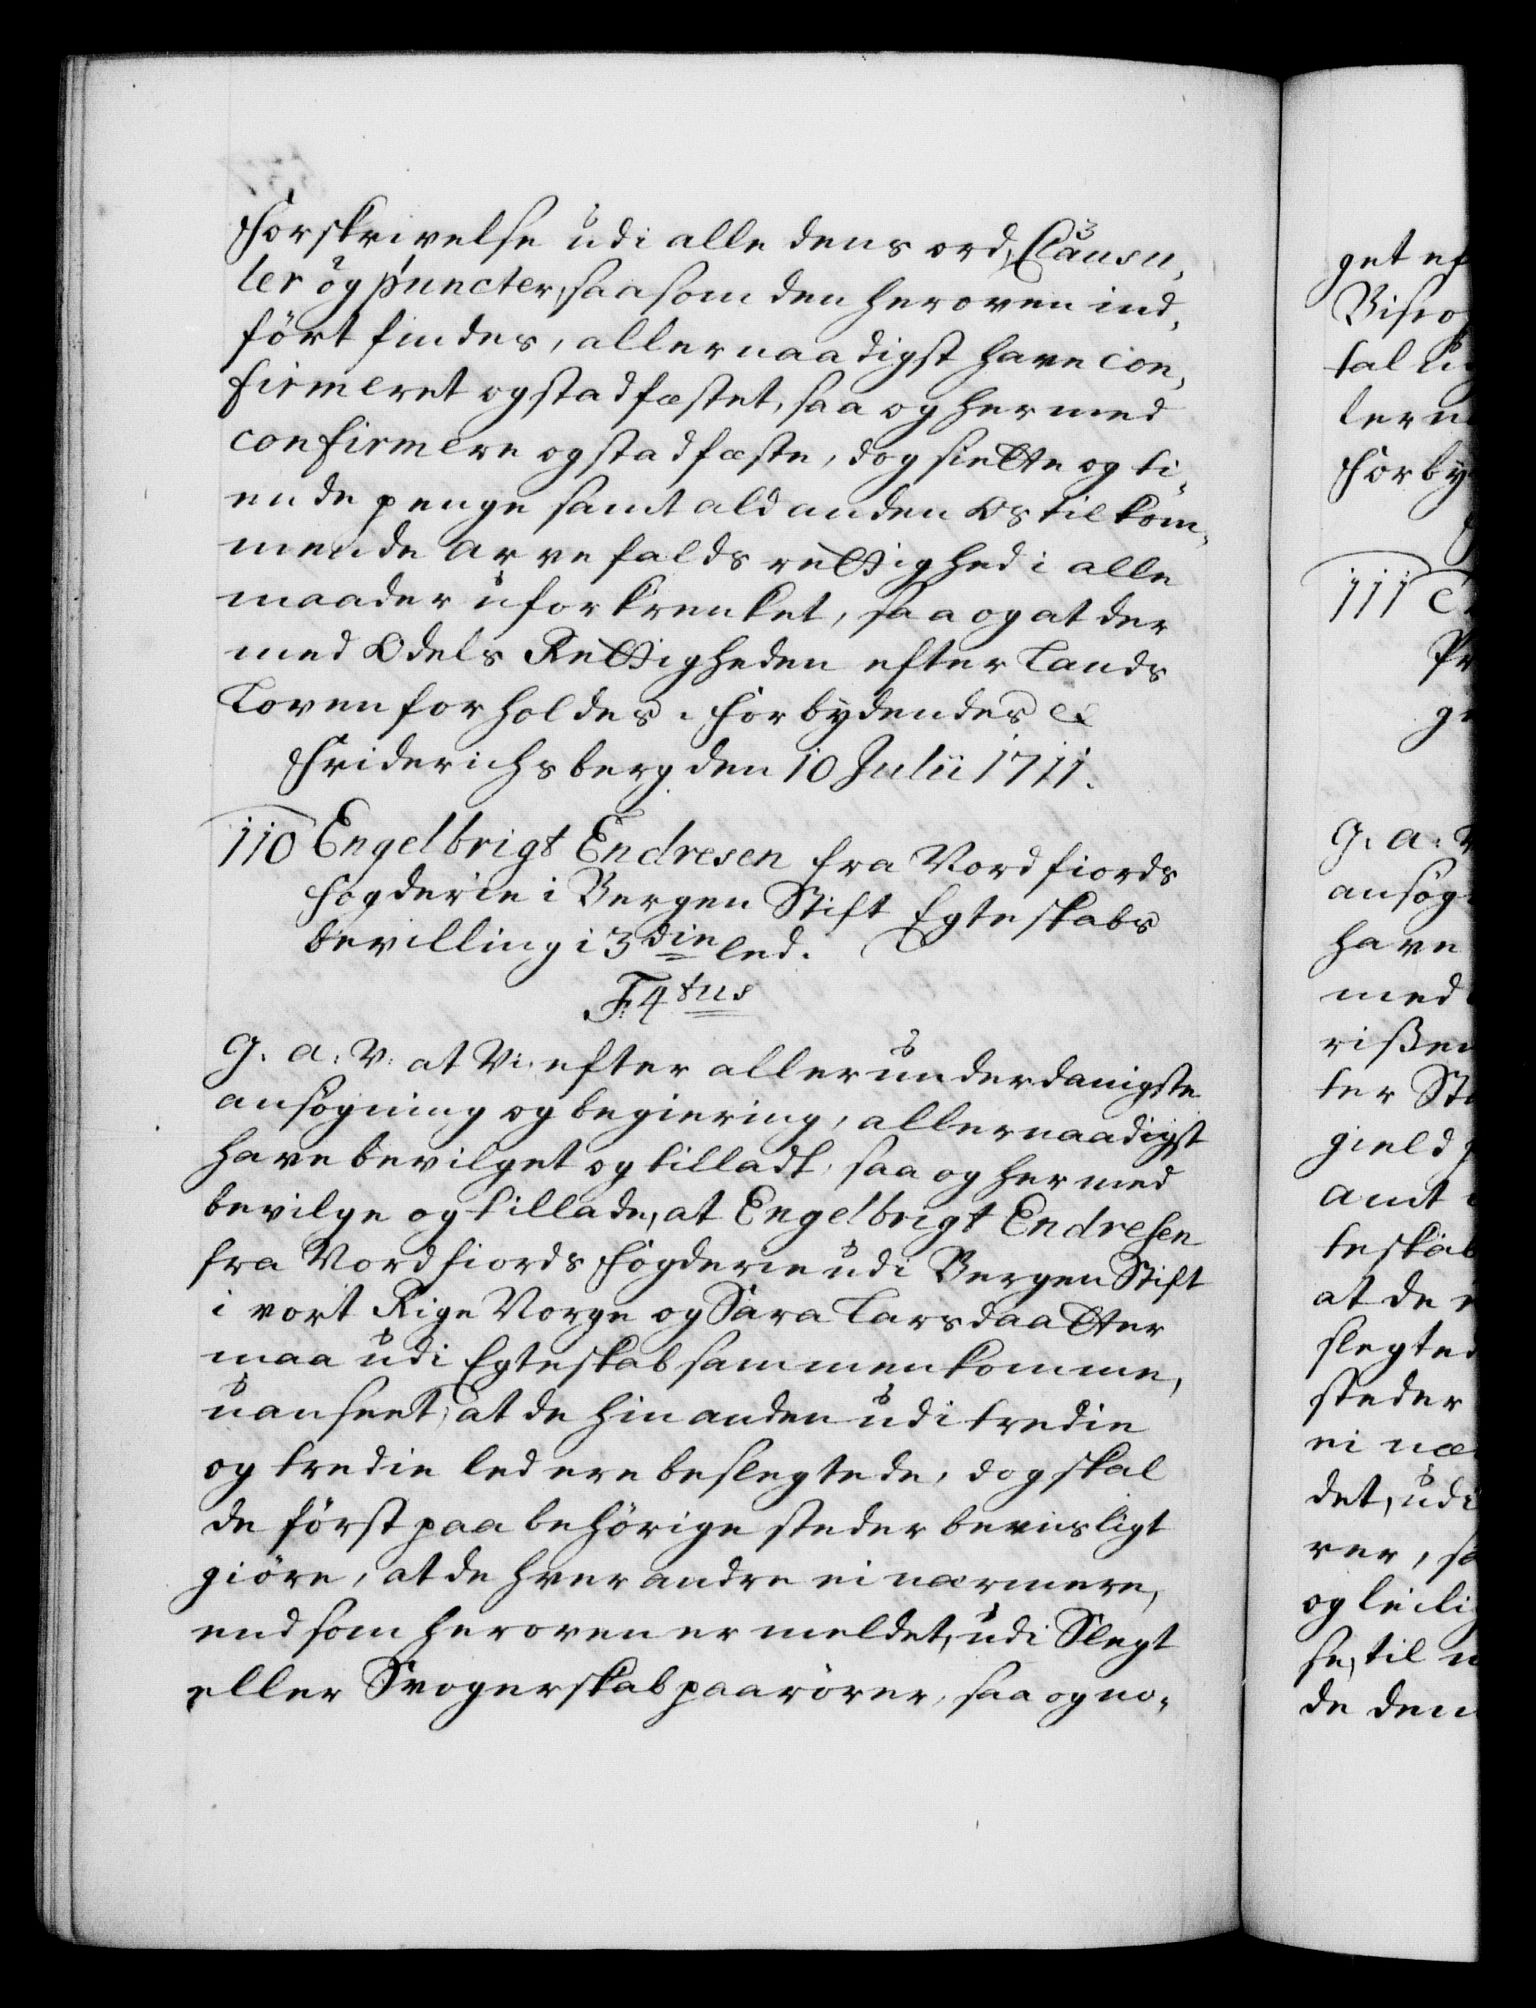 Forskrivelse udi alle dens ord, Clausu,
ler og puncter, saasom den heroven ind,
fört findes, allernaadigst have con,
firmeret og stadfæstet, saa og hermed
confirmere og stadfæste, dog siette og ti,
ende penge samt ald anden Os tilkom,
mende Arvefalds rettighed i alle
maader uforkrenket, saa og at der
med Odels Rettigheden efter Lands
Loven forholdes. Forbydendes &
Friderichsberg den 10 Julii 1711.
110 Engelbrigt Endresen fra Nordfiords
Fogderie i Bergen Stift Egteskabs
bevilling i 3die led.
F. 4tus
G. a. V. at Vi efter allerunderdanigste
ansögning og begiering, allernaadigst
have bevilget og tilladt, saa og hermed
bevilge og tillade, at Engelbrigt Endresen
fra Nordfiords Fogderie udi Bergen Stift
i vort Rige Norge og Sara Larsdaatter
maa udi Egteskab sammenkomme,
uanseet, at de hin anden udi tredie
og tredie led ere beslegtede, dog skal
de först paa behörige steder beviisligt
giöre, at de hver andre ei nærmere,
end som heroven er meldet, udi Slegt
eller Svogerskab paarörer, saa og no,
get ef
Bisco
tal
ler
Forby
111
G. a. V
ansög
have
med
rißen
ter St
gield
Amt
teskab
at de
slegted
steder
ei næ
det, udi
rer, sa
og leilig
se, til
de den